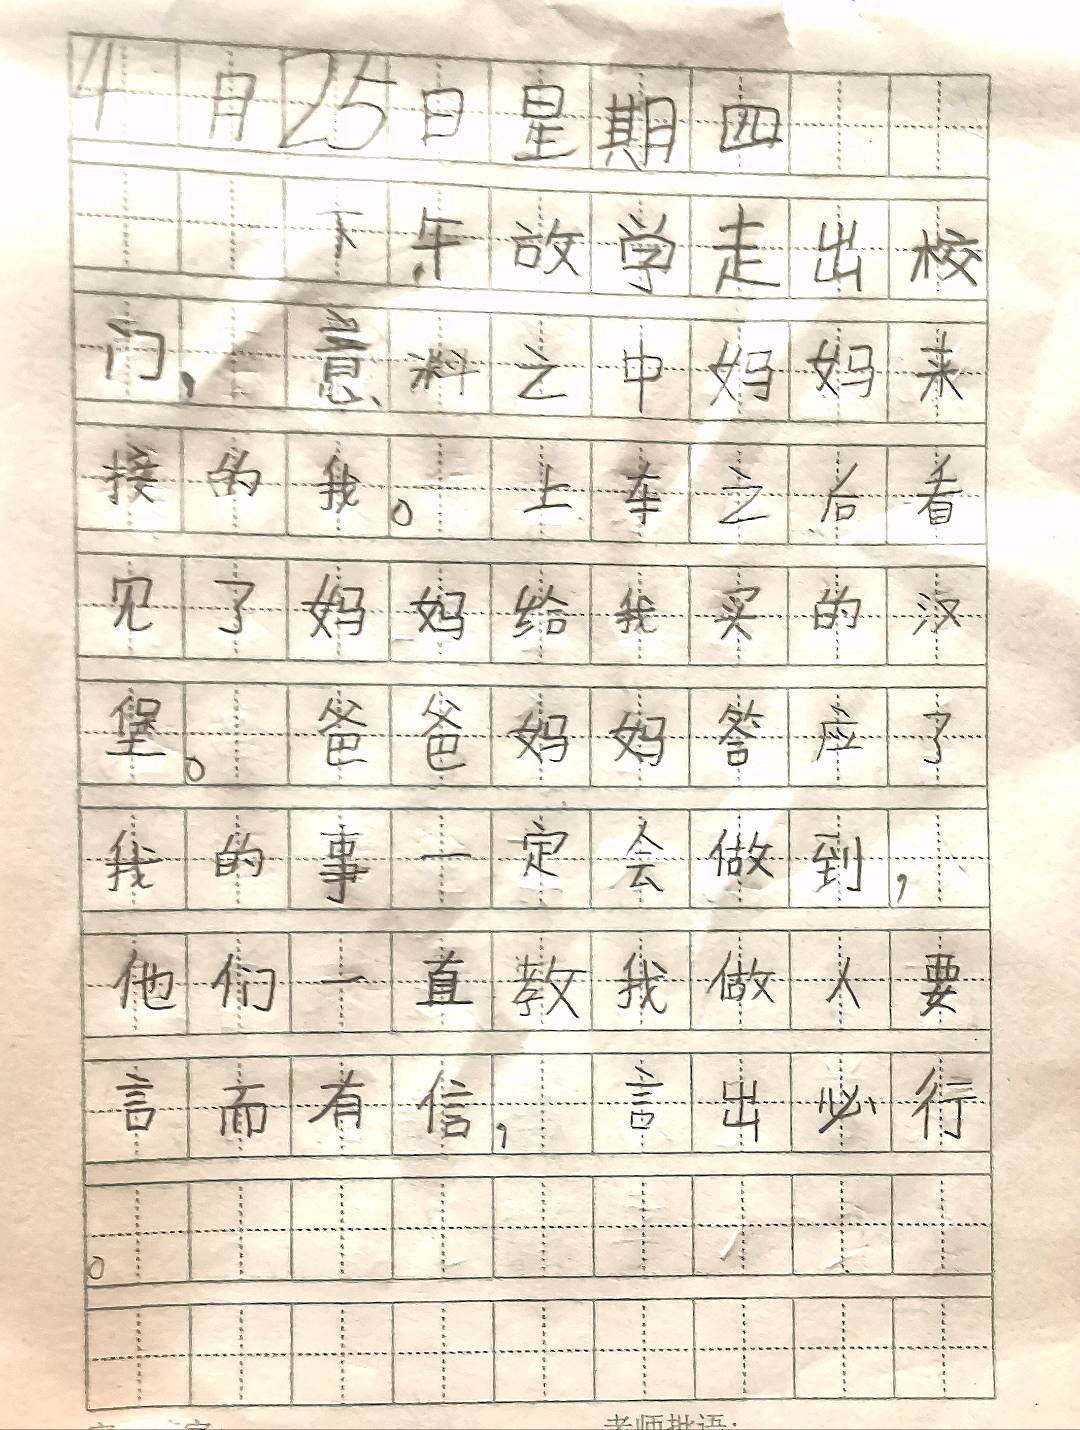 4月25日星期四
下午放学走出校
门，意料之中妈妈来
接的我。上车之后看
见了妈妈给我买的汉
堡。爸爸妈妈答应了
我的事一定会做到，
他们一直教我做人要
言而有信，言出必行
。
老师批语：